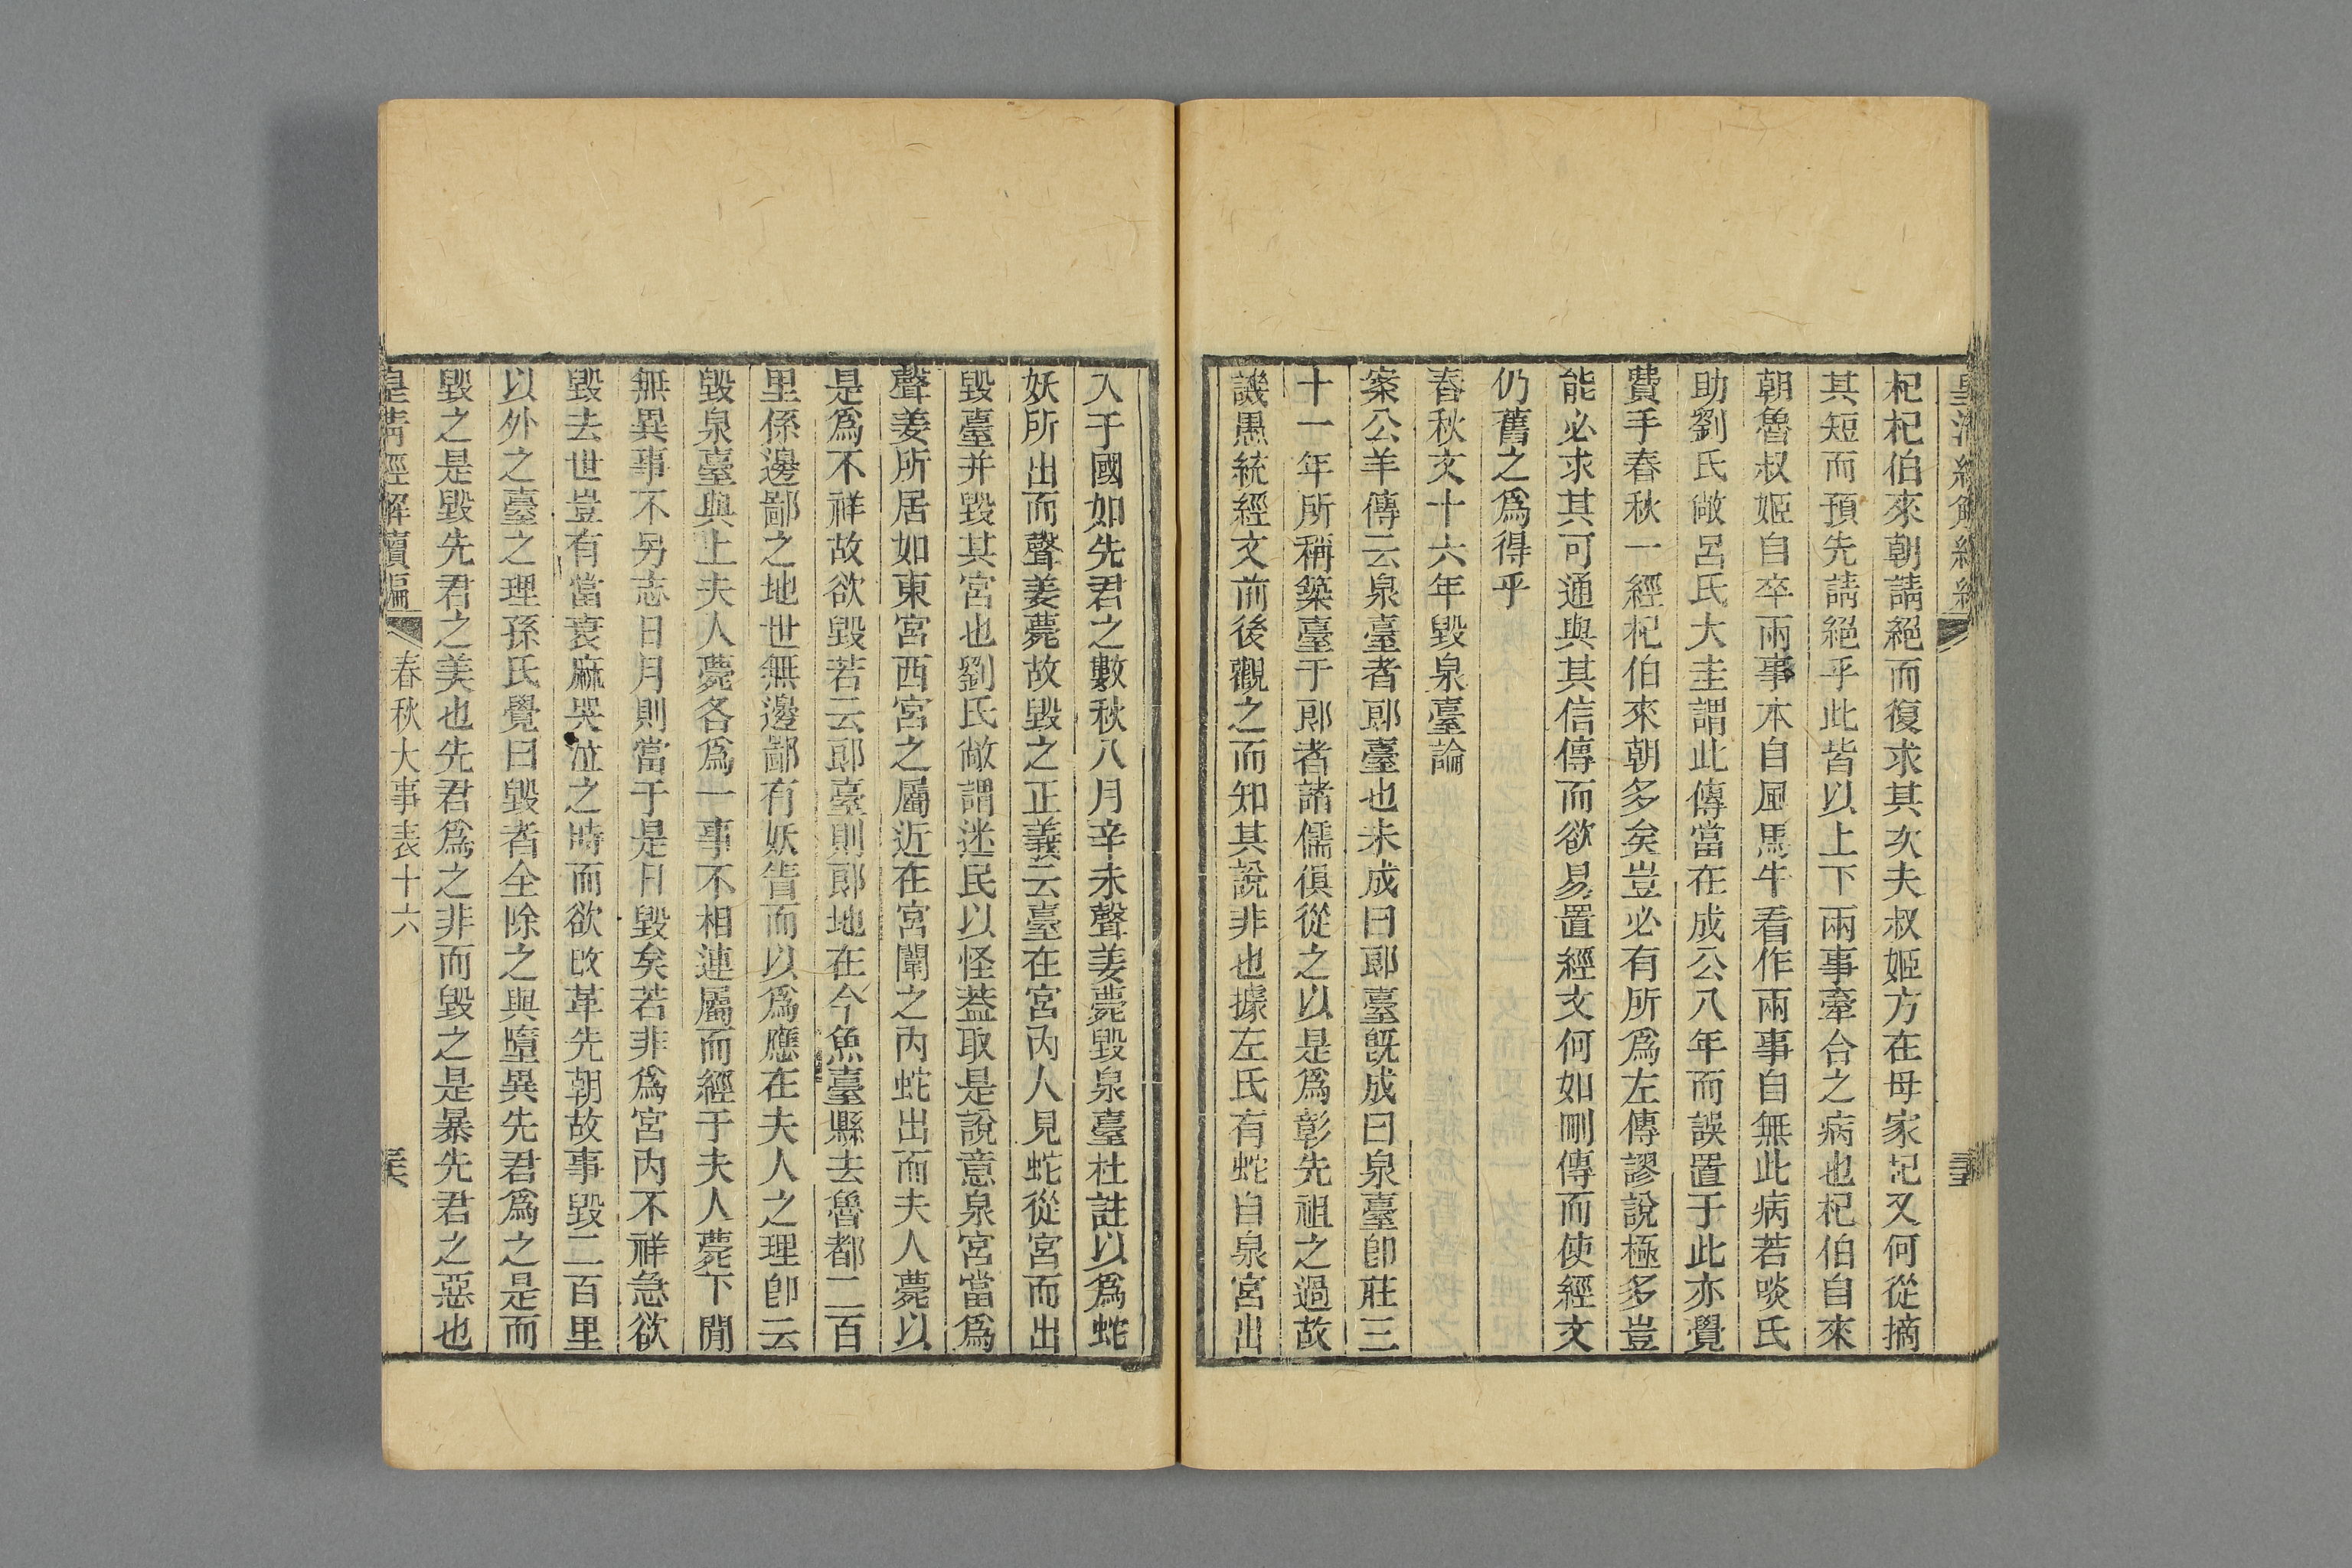 杞杞伯來朝請絕而復求其次夫叔姬方在母家記又何從摘
其短而預先請絕乎此皆以上下兩事牽合之病也杞伯自來
朝魯叔姬自卒兩事本自風馬牛看作兩事自無此病若啖氏
助劉氏敞呂氏大圭謂此傳當在成公八年而誤置于此亦覺
費手春秋一經杞伯來朝多矣豈必有所爲左傳謬說極多豈
能必求其可通與其信傳而欲易置經文何如刪傳而使經文
仍舊之爲得乎
春秋文十六年毀泉臺論
案公羊傳云泉臺者郎臺也未成曰郎臺旣成曰泉臺卽莊三
十一年所稱築臺于郎者諸儒俱從之以是爲彰先祖之過故
譏愚統經文前後觀之而知其說非也據左氏有蛇自泉宮出
入于國如先君之數秋八月辛未聲姜薨毀泉臺杜註以爲蛇
妖所出而聲姜薨故毀之正義云臺在宮內人見蛇從宮而出
毀臺并毀其宮也劉氏敞謂迷民以怪葢取是說意泉宮當爲
聲姜所居如東宮西宮之屬近在宮闈之內蛇出而夫人薨以
是爲不祥故欲毀若云郎臺則郎地在今魚臺縣去魯都二百
里係邊鄙之地世無邊鄙有妖眚而以爲應在夫人之理卽云
毀泉臺與上夫人薨各爲一事不相連屬而經于夫人薨下閒
無異事不另志日月則當于是月毀矣若非爲宮內不祥急欲
毀去世豈有當衰麻哭泣之時而欲改革先朝故事毀二百里
以外之臺之理孫氏覺曰毀者全除之與墮異先君爲之是而
毀之是毀先君之美也先君爲之非而毀之是暴先君之惡也
皇清經解續編 春秋大事表十六